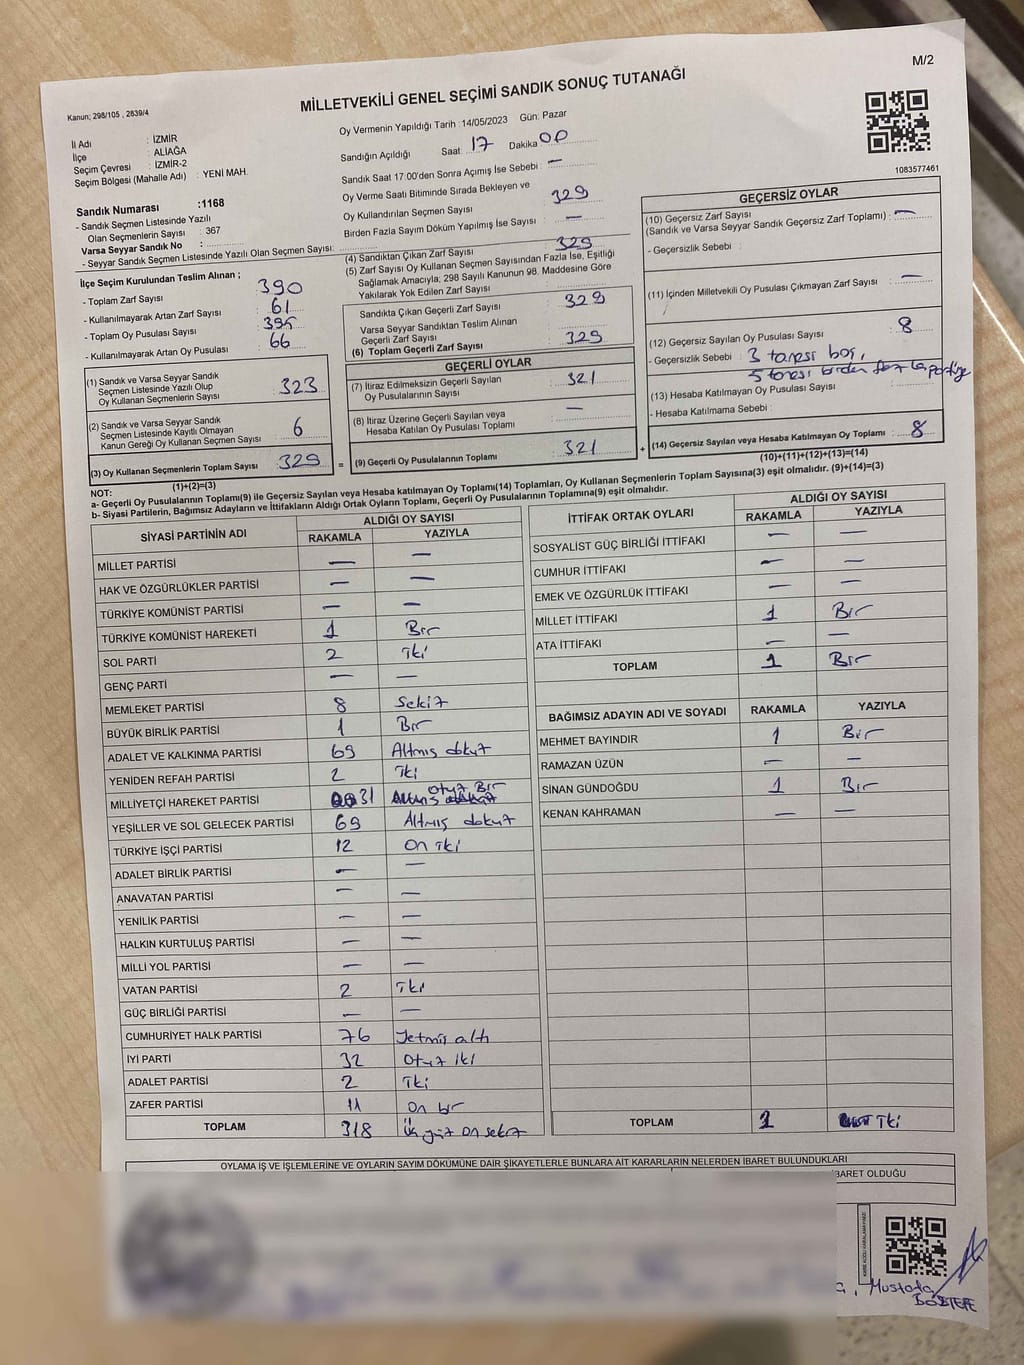 M/2
Kanun; 298/105 , 2839/4
MİLLETVEKİLİ GENEL SEÇİMİ SANDIK SONUÇ TUTANAĞI
İl Adı : İZMİR
İlçe : ALİAĞA
Seçim Çevresi : İZMİR-2
Seçim Bölgesi (Mahalle Adı) : YENİ MAH.
Sandık Numarası :1168
- Sandık Seçmen Listesinde Yazılı
Olan Seçmenlerin Sayısı : 367
Varsa Seyyar Sandık No :
- Seyyar Sandık Seçmen Listesinde Yazılı Olan Seçmen Sayısı:
Oy Vermenin Yapıldığı Tarih : 14/05/2023 Gün: Pazar
Sandığın Açıldığı Saat: 17 Dakika 00
Sandık Saat 17:00'den Sonra Açımış İse Sebebi : —
Oy Verme Saati Bitiminde Sırada Bekleyen ve
Oy Kullandırılan Seçmen Sayısı : 329
Birden Fazla Sayım Döküm Yapılmış İse Sayısı : —
1083577461
İlçe Seçim Kurulundan Teslim Alınan ;
- Toplam Zarf Sayısı : 390
- Kullanılmayarak Artan Zarf Sayısı : 61
- Toplam Oy Pusulası Sayısı : 395
- Kullanılmayarak Artan Oy Pusulası : 66
(1) Sandık ve Varsa Seyyar Sandık
Seçmen Listesinde Yazılı Olup
Oy Kullanan Seçmenlerin Sayısı : 323
(2) Sandık ve Varsa Seyyar Sandık
Seçmen Listesinde Kayıtlı Olmayan
Kanun Gereği Oy Kullanan Seçmen Sayısı : 6
(3) Oy Kullanan Seçmenlerin Toplam Sayısı : 329
(1)+(2)=(3)
(4) Sandıktan Çıkan Zarf Sayısı : 329
(5) Zarf Sayısı Oy Kullanan Seçmen Sayısından Fazla İse, Eşitliği
Sağlamak Amacıyla; 298 Sayılı Kanunun 98. Maddesine Göre
Yakılarak Yok Edilen Zarf Sayısı :
Sandıkta Çıkan Geçerli Zarf Sayısı : 329
Varsa Seyyar Sandıktan Teslim Alınan
Geçerli Zarf Sayısı :
(6) Toplam Geçerli Zarf Sayısı : 329
GEÇERLİ OYLAR
(7) İtiraz Edilmeksizin Geçerli Sayılan
Oy Pusulalarının Sayısı : 321
(8) İtiraz Üzerine Geçerli Sayılan veya
Hesaba Katılan Oy Pusulası Toplamı : —
= (9) Geçerli Oy Pusulalarının Toplamı : 321
GEÇERSİZ OYLAR
(10) Geçersiz Zarf Sayısı
(Sandık ve Varsa Seyyar Sandık Geçersiz Zarf Toplamı) : —
- Geçersizlik Sebebi :
(11) İçinden Milletvekili Oy Pusulası Çıkmayan Zarf Sayısı : —
(12) Geçersiz Sayılan Oy Pusulası Sayısı : 8
- Geçersizlik Sebebi : 3 tanesi boş,
5 tanesi birden fazla partiye
(13) Hesaba Katılmayan Oy Pusulası Sayısı :
- Hesaba Katılmama Sebebi :
+ (14) Geçersiz Sayılan veya Hesaba Katılmayan Oy Toplamı : 8
(10)+(11)+(12)+(13)=(14)
NOT:
a- Geçerli Oy Pusulalarının Toplamı(9) ile Geçersiz Sayılan veya Hesaba katılmayan Oy Toplamı(14) Toplamları, Oy Kullanan Seçmenlerin Toplam Sayısına(3) eşit olmalıdır. (9)+(14)=(3)
b- Siyasi Partilerin, Bağımsız Adayların ve İttifakların Aldığı Ortak Oyların Toplamı, Geçerli Oy Pusulalarının Toplamına(9) eşit olmalıdır.
SİYASİ PARTİNİN ADI ALDIĞI OY SAYISI
RAKAMLA YAZIYLA
MİLLET PARTİSİ — —
HAK VE ÖZGÜRLÜKLER PARTİSİ — —
TÜRKİYE KOMÜNİST PARTİSİ — —
TÜRKİYE KOMÜNİST HAREKETİ 1 Bir
SOL PARTİ 2 iki
GENÇ PARTİ — —
MEMLEKET PARTİSİ 8 Sekiz
BÜYÜK BİRLİK PARTİSİ 1 Bir
ADALET VE KALKINMA PARTİSİ 69 Altmış dokuz
YENİDEN REFAH PARTİSİ 2 iki
MİLLİYETÇİ HAREKET PARTİSİ 31 otuz Bir
YEŞİLLER VE SOL GELECEK PARTİSİ 69 Altmış dokuz
TÜRKİYE İŞÇİ PARTİSİ 12 on iki
ADALET BİRLİK PARTİSİ — —
ANAVATAN PARTİSİ — —
YENİLİK PARTİSİ — —
HALKIN KURTULUŞ PARTİSİ — —
MİLLİ YOL PARTİSİ — —
VATAN PARTİSİ 2 iki
GÜÇ BİRLİĞİ PARTİSİ — —
CUMHURİYET HALK PARTİSİ 76 Yetmiş altı
İYİ PARTİ 32 Otuz iki
ADALET PARTİSİ 2 iki
ZAFER PARTİSİ 11 on bir
TOPLAM 318 Üç yüz on sekiz
İTTİFAK ORTAK OYLARI ALDIĞI OY SAYISI
RAKAMLA YAZIYLA
SOSYALİST GÜÇ BİRLİĞİ İTTİFAKI — —
CUMHUR İTTİFAKI — —
EMEK VE ÖZGÜRLÜK İTTİFAKI — —
MİLLET İTTİFAKI 1 Bir
ATA İTTİFAKI — —
TOPLAM 1 Bir
BAĞIMSIZ ADAYIN ADI VE SOYADI RAKAMLA YAZIYLA
MEHMET BAYINDIR 1 Bir
RAMAZAN ÜZÜN — —
SİNAN GÜNDOĞDU 1 Bir
KENAN KAHRAMAN — —
TOPLAM iki
OYLAMA İŞ VE İŞLEMLERİNE VE OYLARIN SAYIM DÖKÜMÜNE DAİR ŞİKAYETLERLE BUNLARA AİT KARARLARIN NELERDEN İBARET BULUNDUKLARI
BARET OLDUĞU
Mustafa
BOZTEPE